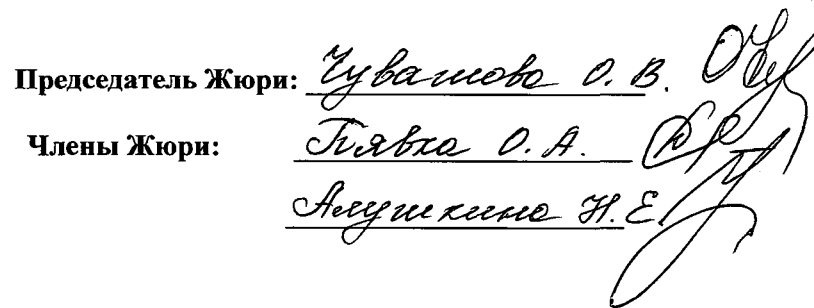 Председатель Жюри: Чувашова О. В.
Члены Жюри: Пявка О. А.
Алушкина Н. Е.